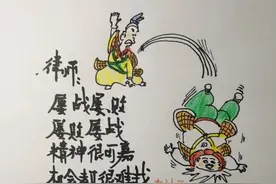 律师：
屡战屡败
屡败屡战
精神很可嘉
机会却很难找